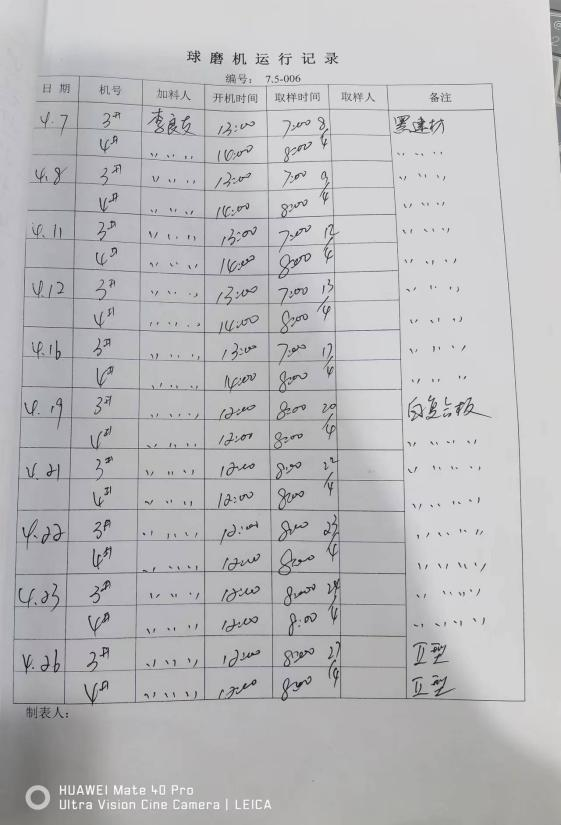 球磨机运行记录
编号： 7.5-006
日期 机号 加料人 开机时间 取样时间 取样人 备注
4.7 3# 李良友 13:00 7:00 8/4
4# 〃 〃 14:00 8:00 〃 〃
4.8 3# 〃 〃 13:00 7:00 9/4 〃 〃
4# 〃 〃 14:00 8:00 〃 〃
4.11 3# 〃 〃 13:00 7:00 12/4 〃 〃
4# 〃 〃 14:00 8:00 〃 〃
4.12 3# 〃 〃 13:00 7:00 13/4 〃 〃
4# 〃 〃 14:00 8:00 〃 〃
4.16 3# 〃 〃 13:00 7:00 17/4 〃 〃
4# 〃 〃 14:00 8:00 〃 〃
4.19 3# 〃 〃 12:00 8:00 20/4 白复合板
4# 〃 〃 12:00 8:00 〃 〃
4.21 3# 〃 〃 12:00 8:00 22/4 〃 〃
4# 〃 〃 12:00 8:00 〃 〃
4.22 3# 〃 〃 12:00 8:00 23/4 〃 〃
4# 〃 〃 12:00 8:00 〃 〃
4.23 3# 〃 〃 12:00 8:00 24/4 〃 〃
4# 〃 〃 12:00 8:00 〃 〃
4.26 3# 〃 〃 12:00 8:00 27/4 II型
4# 〃 〃 12:00 8:00 II型
制表人：
HUAWEI Mate 40 Pro
Ultra Vision Cine Camera | LEICA